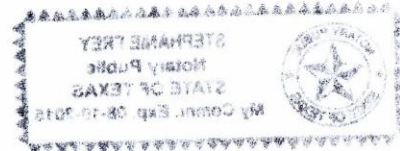 STEPHANIE FREY
Notary Public
STATE OF TEXAS
My Comm. Exp. 08-18-2015